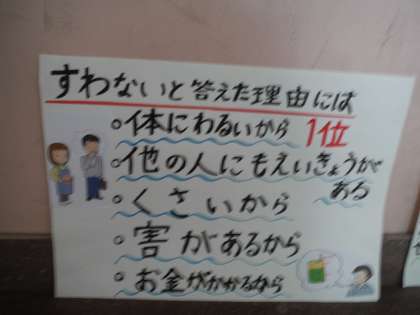 すわないと答えた理由には
。体にわるいから 1位
。他の人にもえいきょうが
ある
。くさいから
。害があるから
。お金がかかるから